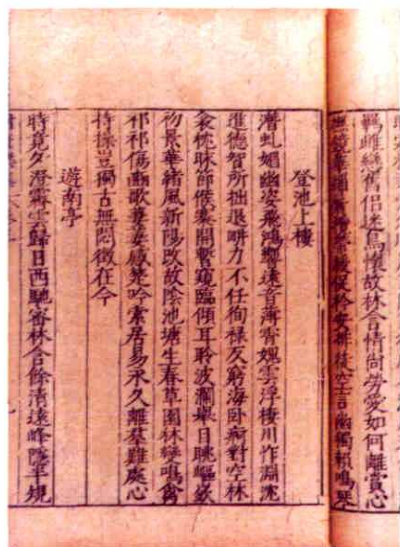 羈雌戀舊侶迷鳥懷故林含情尚勞愛如何離賞心
撫鏡華緇鬢攬帶緩促衿安排徒空言幽獨賴鳴琴
登池上樓
潛虬媚幽姿飛鴻響遠音薄霄媿雲浮棲川怍淵沈
進德智所拙退耕力不任徇祿反窮海卧痾對空林
衾枕昧節候褰開暫窺臨傾耳聆波瀾舉目眺嶇嶔
初景革緒風新陽改故陰池塘生春草園柳變鳴禽
祁祁傷豳歌萋萋感楚吟索居易永久離羣難處心
持操豈獨古無悶徵在今
遊南亭
時竟夕澄霽雲歸日西馳密林含餘清遠峰隱半規